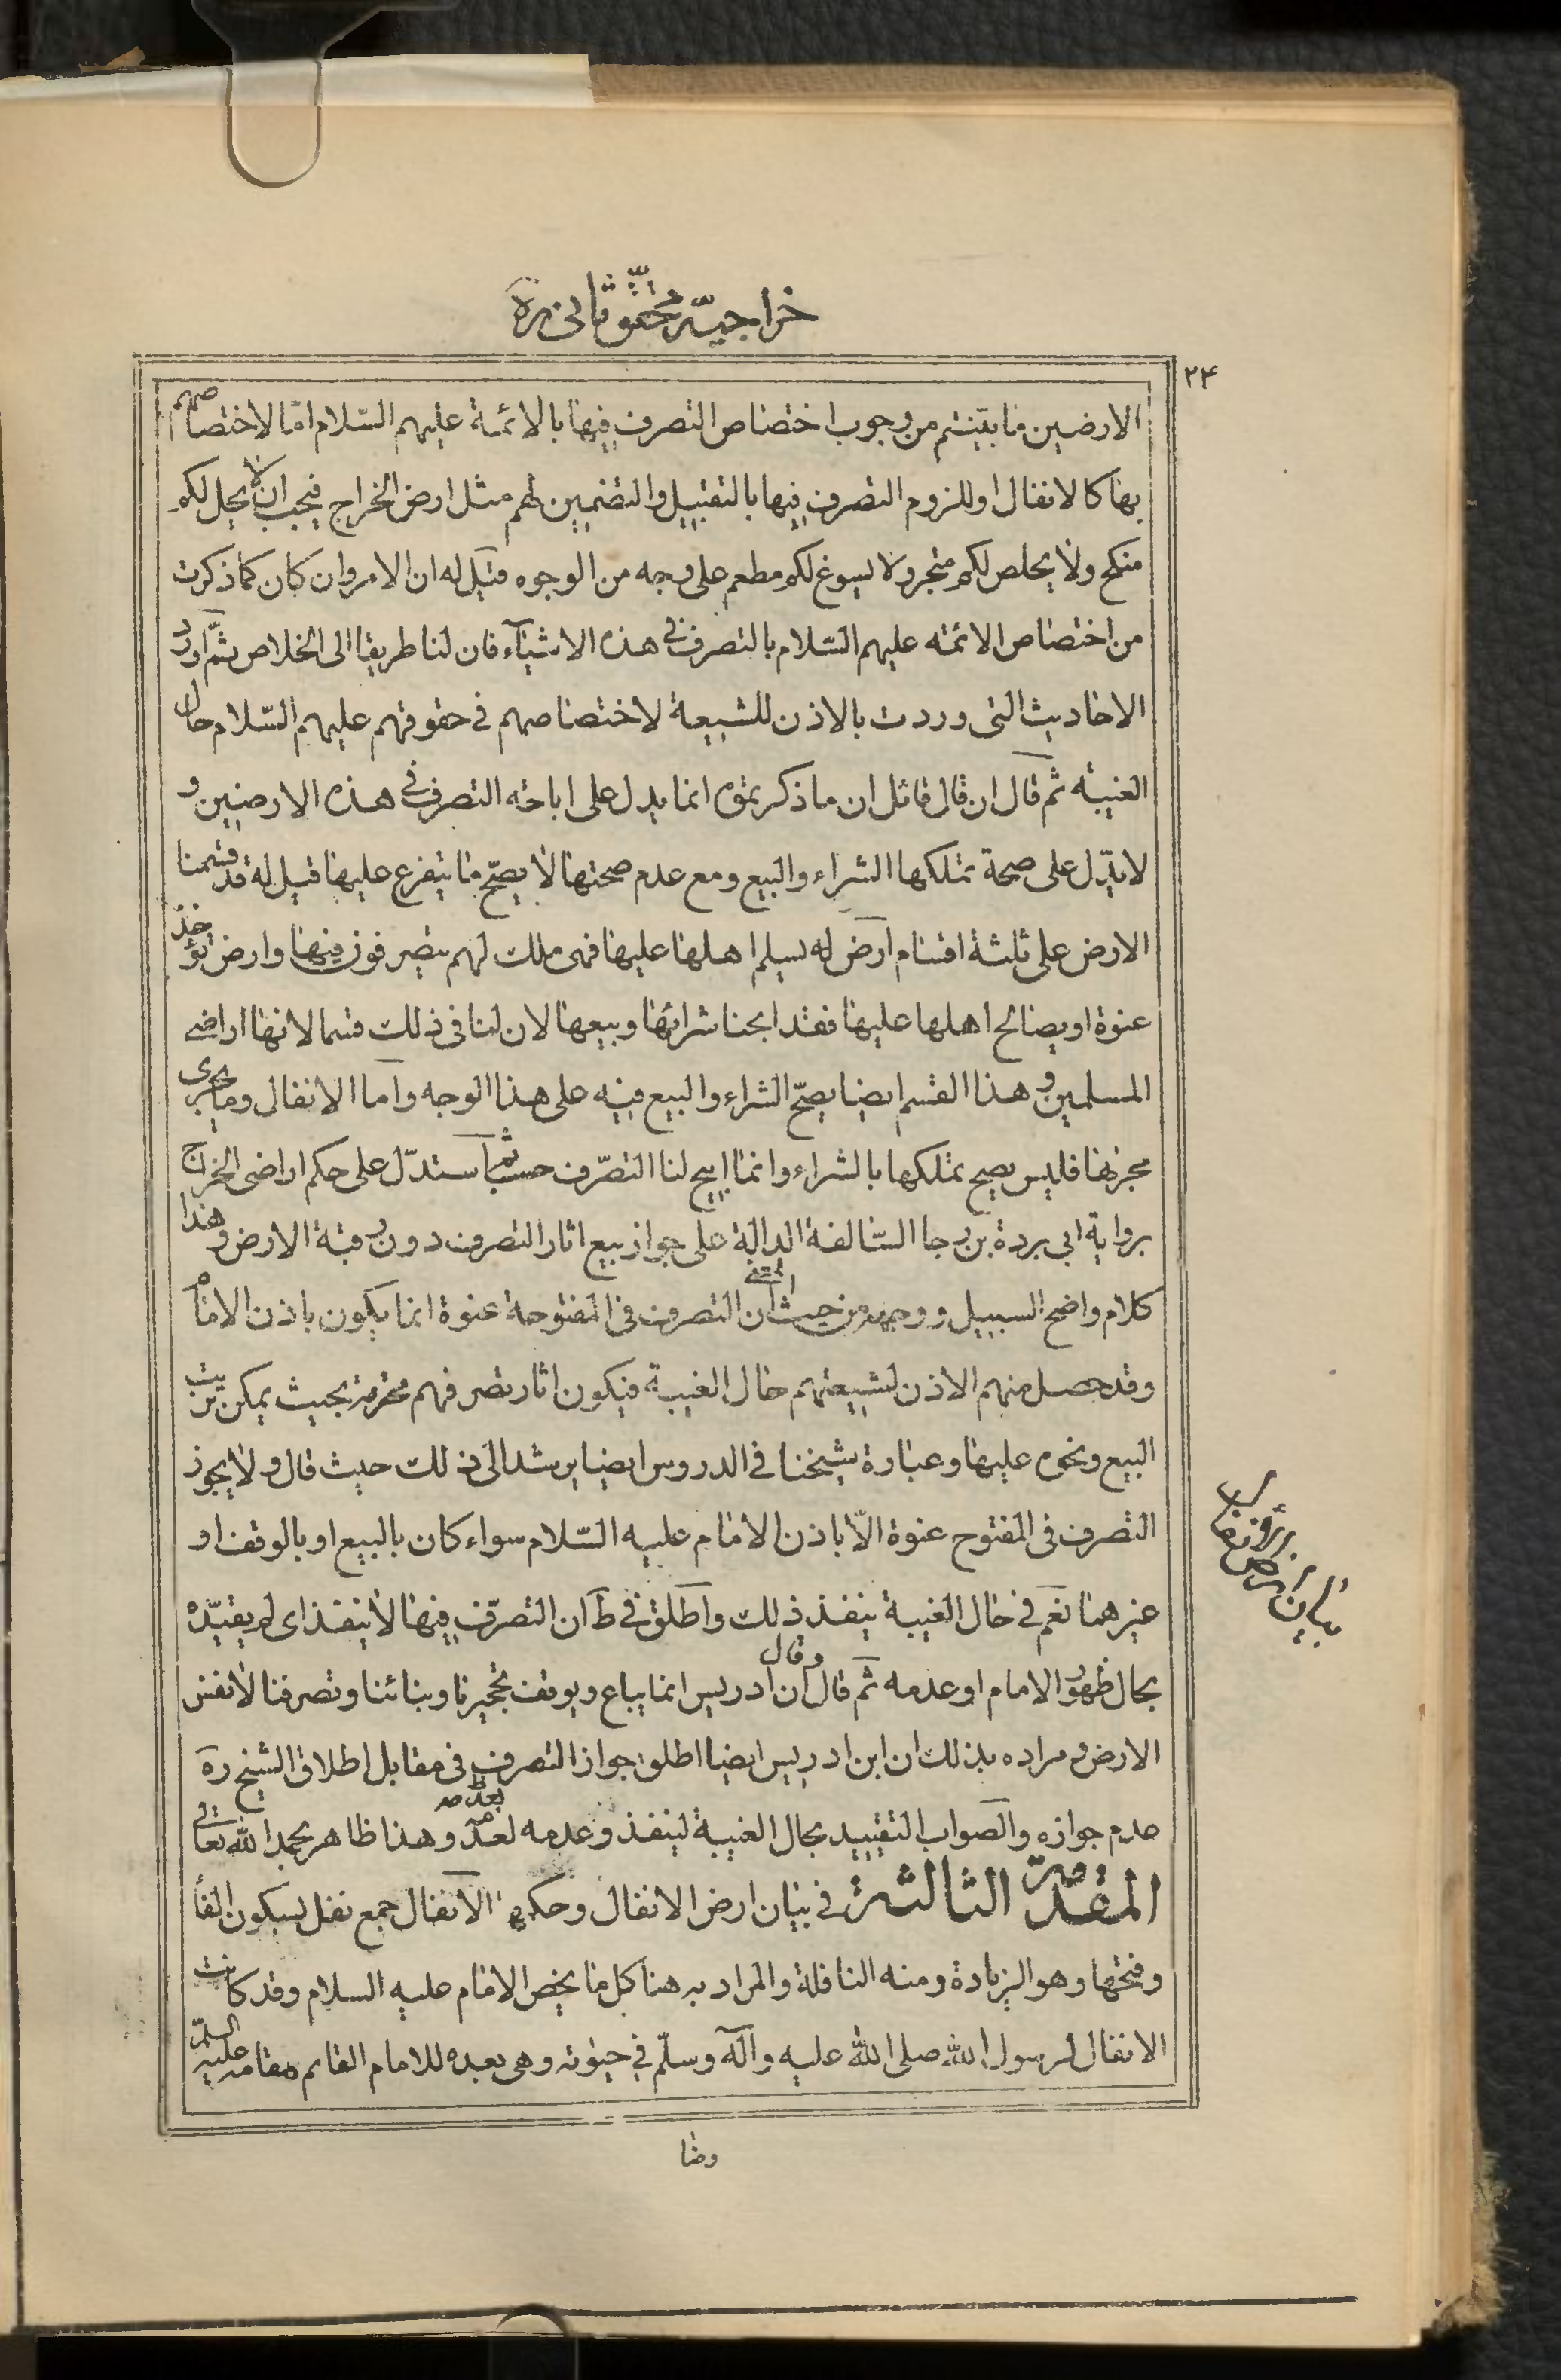 خراجیه محقق ثانی ره
۲۴
الارضین ما بیّنتم من وجوب اختصاص التصرف فیها بالائمة علیهم السّلام امّا لاختصاصهم
بها کالانفال او للزوم التصرف فیها بالتقبیل والتضمین لهم مثل ارض الخراج فیجب ان لا یحل لکم
منکح ولا یخلص لکم متجر ولا یسوغ لکم مطعم علی وجه من الوجوه قیل له ان الامر وان کان کما ذکرت
من اختصاص الائمه علیهم السّلام بالتصرف فی هذه الاشیآء فان لنا طریقا الی الخلاص ثمّ اورد
الاحادیث التی وردت بالاذن للشیعة لاختصاصهم فی حقوقهم علیهم السّلام حال
الغیبه ثم قال ان قال قائل ان ما ذکرتموه انما یدل علی اباحه التصرف فی هذه الارضین و
لا یدّل علی صحة تملکها الشراء والبیع ومع عدم صحتها لا یصحّ ما یتفرع علیها قیل له قد قسمنا
الارض علی ثلثة اقسام ارض لم یسلم اهلها علیها فهی ملک لهم یتصرفون فیها وارض تؤخذ
عنوة او یصالح اهلها علیها فقد ابحنا شرائها وبیعها لان لنا فی ذلک قسما لانها اراضی
المسلمین و هذا القسم ایضا یصحّ الشراء والبیع فیه علی هذا الوجه واما الانفال وما یجری
مجریها فلیس یصح تملکها بالشراء وانما ابیح لنا التصّرف حسب ثم استدّل علی حکم اراضی الخراج
بروایة ابی بردة بن رجا السّالفة الدالة علی جواز بیع اثار التصرف دون رقبة الارض وهذا
کلام واضح السبیل ووجهه من حیث المعنی ان التصرف فی المفتوحة عنوة انما یکون باذن الامام
وقد حصل منهم الاذن لشیعتهم حال الغیبة فیکون اثار تصرفهم محترمة بحیث یمکن ترتب
البیع ونحوه علیها وعبارة شیخنا فی الدروس ایضا یرشد الی ذلک حیث قال ولا یجوز
التصرف فی المفتوح عنوة الّا باذن الامام علیه السّلام سواء کان بالبیع او بالوقف او
غیرهما نعم فی حال الغیبة ینفذ ذلک واطلق فی ط ان التصرّف فیها لا ینفذ ای لم یقیّده
بحال ظهور الامام او عدمه ثم قال وقال ابن ادریس انما یباع ویوقف تحجیرنا وبنائنا وتصرفنا لا نفس
الارض و مراده بذلک ان ابن ادریس ایضا اطلق جواز التصرف فی مقابل اطلاق الشیخ ره
عدم جوازه والصواب التقیید بحال الغیبة لینفذ وعدمه لعدمه وهذا ظاهر بحمد الله تعالی
المقدّمة الثالثة فی بیان ارض الانفال وحکمها الانفال جمع نفل بسکون الفا
وفتحها وهو الزیادة ومنه النافلة والمراد به هنا کل ما یخص الامام علیه السلام وقد کانت
الانفال لرسول الله صلی الله علیه وآله وسلّم فی حیوته وهی بعده للامام القائم مقامه علیه السلم
وضا
بیان ارض